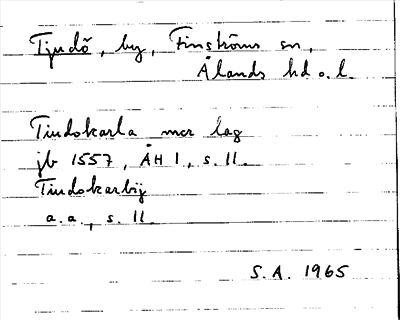 Tjudö, by, Finströms sn,
Ålands hd o. l.
Tiudokarla mcr lag
jb 1557, ÅH 1, s. 11.
Tiudokarbij
a.a., s. 11.
S.A. 1965